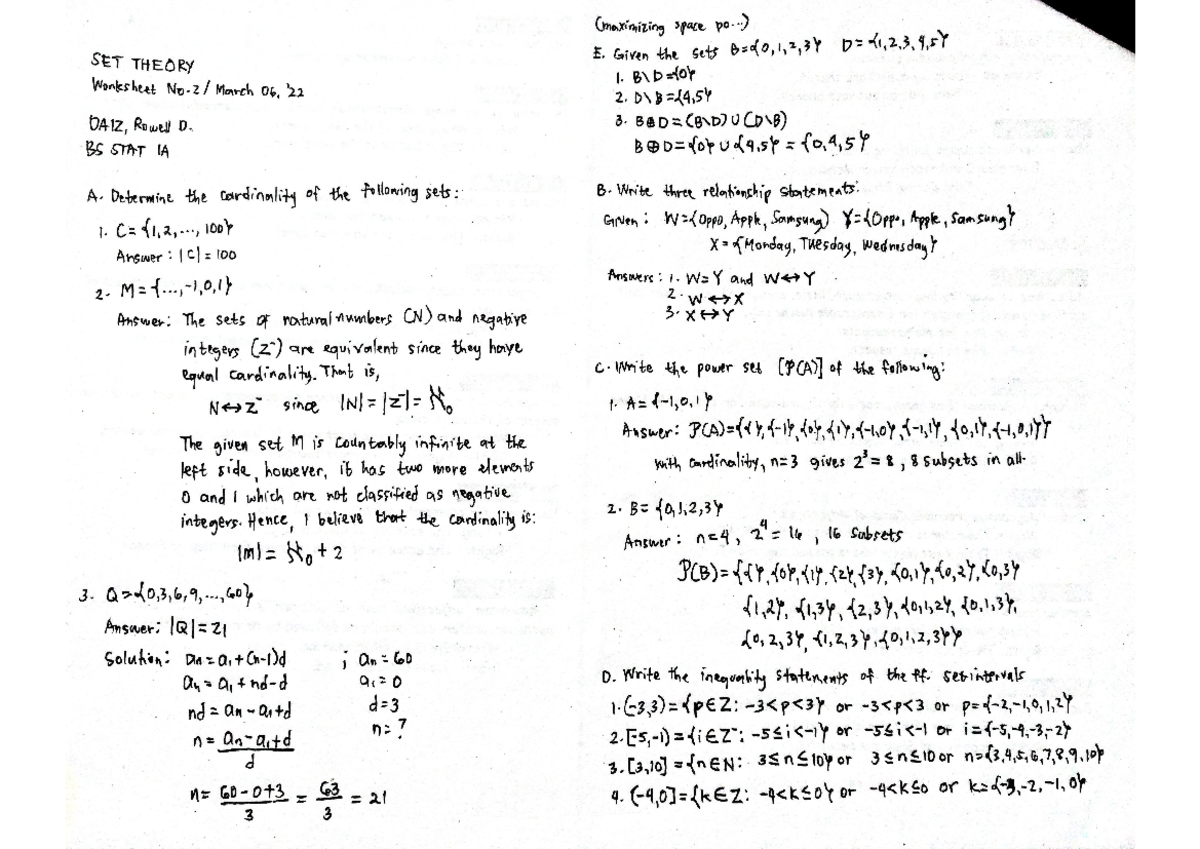 SET THEORY
Worksheet No.2 / March 06, '22
DAIZ, Rowell D.
BS STAT 1A
A. Determine the cardinality of the following sets:
1. C = {1,2,..., 100}
Answer: |C| = 100
2. M = {...,-1,0,1}
Answer: The sets of natural numbers (N) and negative
integers (Z⁻) are equivalent since they have
equal cardinality. That is,
N↔Z⁻ since |N| = |Z⁻| = ℵ₀
The given set M is countably infinite at the
left side, however, it has two more elements
0 and 1 which are not classified as negative
integers. Hence, I believe that the cardinality is:
|M| = ℵ₀ + 2
3. Q = {0,3,6,9,...,60}
Answer: |Q| = 21
Solution: an = a₁ + (n-1)d ; an = 60
an = a₁ + nd - d a₁ = 0
nd = an - a₁ + d d = 3
n = an - a₁ + d / d n = ?
n = 60 - 0 + 3 / 3 = 63 / 3 = 21
(maximizing space po...)
E. Given the sets B = {0,1,2,3} D = {1,2,3,4,5}
1. B\D = {0}
2. D\B = {4,5}
3. B⊕D = (B\D) ∪ (D\B)
B⊕D = {0} ∪ {4,5} = {0,4,5}
B. Write three relationship statements:
Given: W = {Oppo, Apple, Samsung} Y = {Oppo, Apple, Samsung}
X = {Monday, Tuesday, Wednesday}
Answers: 1. W = Y and W↔Y
2. W↔X
3. X↔Y
C. Write the power set [P(A)] of the following:
1. A = {-1,0,1}
Answer: P(A) = {{},{-1},{0},{1},{-1,0},{-1,1},{0,1},{-1,0,1}}
with cardinality, n=3 gives 2³ = 8, 8 subsets in all.
2. B = {0,1,2,3}
Answer: n=4, 2⁴ = 16, 16 subsets
P(B) = {{},{0},{1},{2},{3},{0,1},{0,2},{0,3}
{1,2}, {1,3}, {2,3}, {0,1,2}, {0,1,3},
{0,2,3}, {1,2,3}, {0,1,2,3}}
D. Write the inequality statements of the ff. set intervals
1. (-3,3) = {p∈Z: -3<p<3} or -3<p<3 or p={-2,-1,0,1,2}
2. [-5,-1) = {i∈Z⁻: -5≤i<-1} or -5≤i<-1 or i={-5,-4,-3,-2}
3. [3,10] = {n∈N: 3≤n≤10} or 3≤n≤10 or n={3,4,5,6,7,8,9,10}
4. (-4,0] = {k∈Z: -4<k≤0} or -4<k≤0 or k={-3,-2,-1,0}